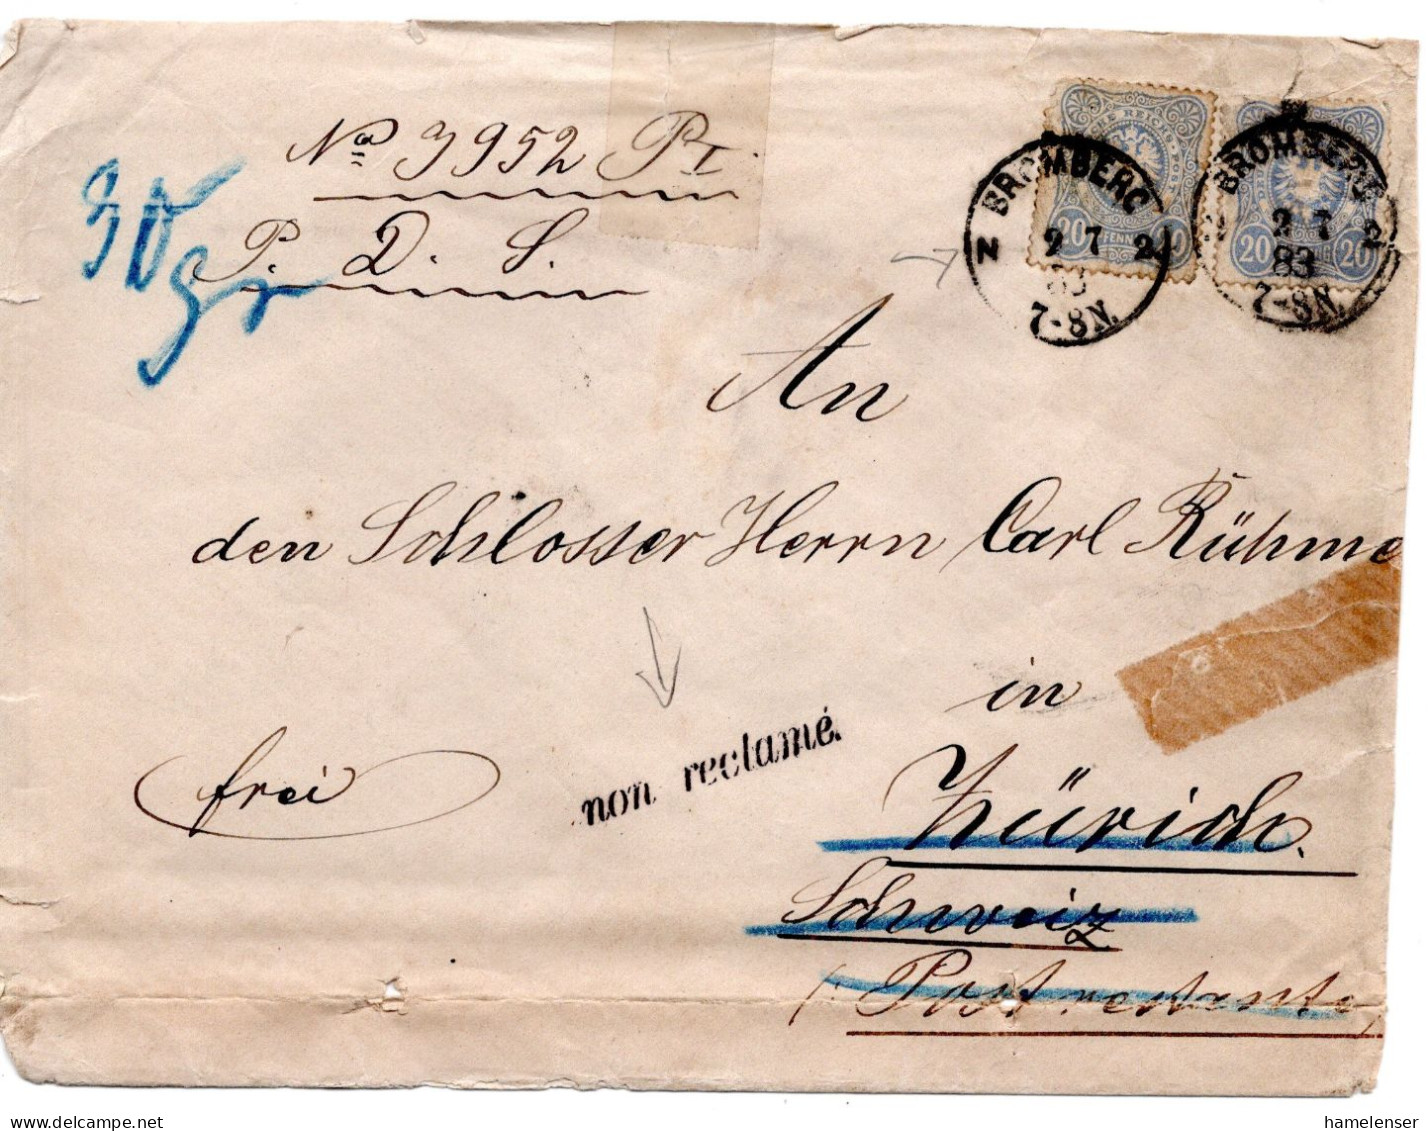 No 3952 Pr I.
P. D. S.
30 gr
BROMBERG 2
2 7
83
7-8N.
BROMBERG
2 7 2
83
7-8N.
DEUTSCHE REICHS-POST
20 PFENNIG 20
20 20
An
den Schlosser Herrn Carl Rühme
in
Zürich.
Schweiz
(Postrestante)
frei
non reclamé.
www.delcampe.net
hamelenser